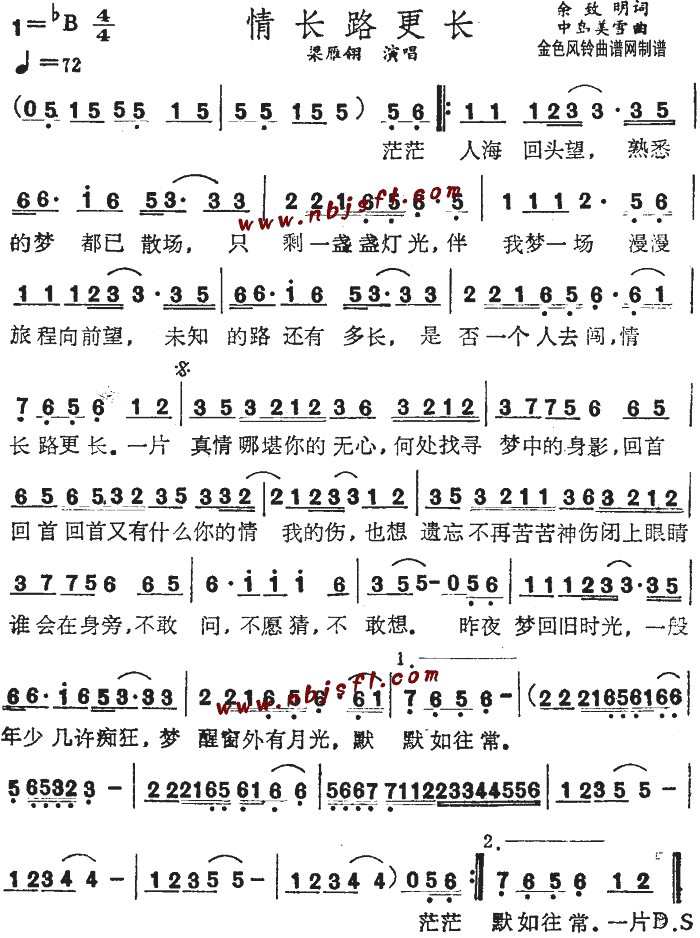 1=♭B 4/4 情长路更长 余致明词
♩=72 梁雁翎 演唱 中岛美雪曲
金色风铃曲谱网制谱
(05 15 55 15 | 55 155) 56 ‖: 11 1233·35
茫茫 人海 回头望，熟悉
66·i6 53·33 | 221656·5 | 1112·56
www.nbjsft.com
的梦 都已 散场，只 剩一盏盏灯光，伴 我梦一场 漫漫
111233·35 | 66·i6 53·33 | 221656·61
旅程向前望，未知 的路还有 多长，是 否一个人去闯，情
𝄋
7656 12 | 35 3212 36 3212 | 377566 65
长路更长。一片 真情哪堪你的无心，何处找寻 梦中的身影，回首
6565 32 35 332 | 2123312 | 35 3211 363212
回首回首又有什么你的情 我的伤，也想 遗忘不再苦苦神伤闭上眼睛
377566 65 | 6·iii6 | 355-056 | 111233·35
谁会在身旁，不敢 问，不愿猜，不 敢想。 昨夜 梦回旧时光，一般
1.
66·i653·33 | 221656·61 | 7656- | (2221656166
www.nbjsft.com
年少几许痴狂，梦 醒窗外有月光，默 默如往常。
565323- | 222165 6166 | 5667 711223344556 | 12355-
2.
12344- | 12355- | 12344-) 056 :‖ 7656 12 ‖
茫茫 默如往常。一片D.S